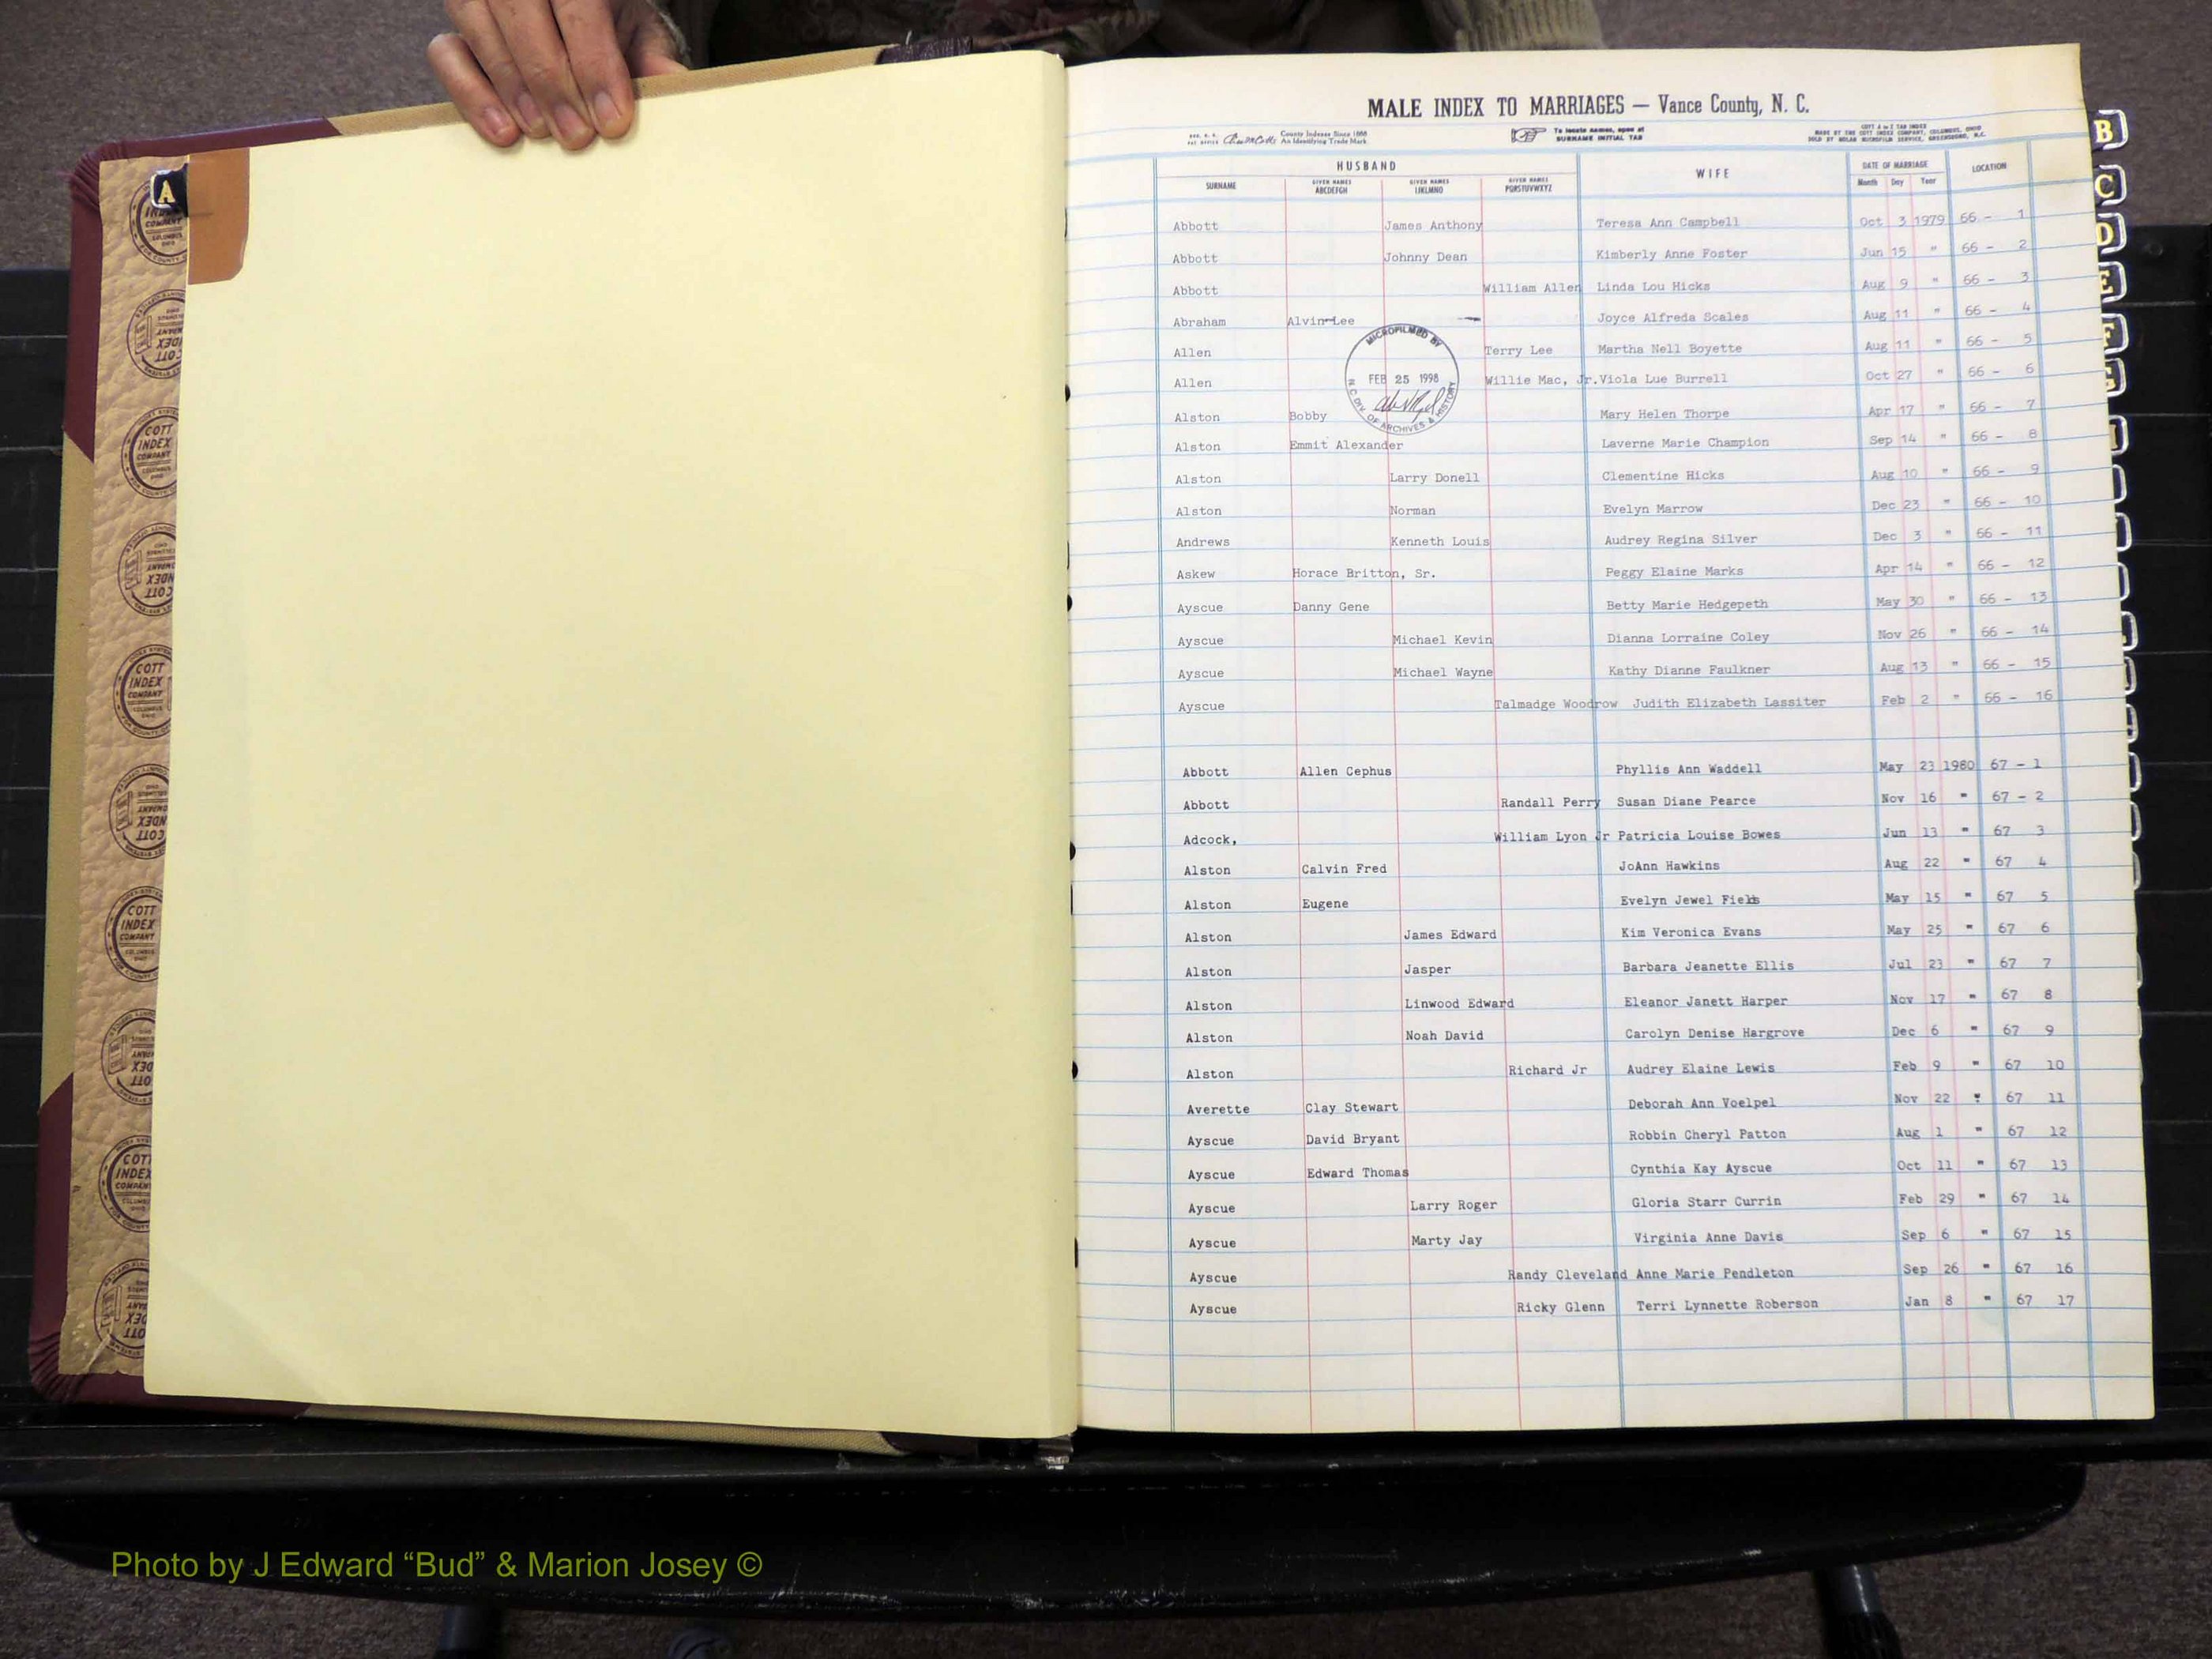 MALE INDEX TO MARRIAGES — Vance County, N. C.
County Indexes Since 1888
An Identifying Trade Mark
To locate names, open at
SURNAME INITIAL TAB
COTT A to Z TAB INDEX
MADE BY THE COTT INDEX COMPANY, COLUMBUS, OHIO
SOLD BY NOLAN MICROFILM SERVICE, GREENSBORO, N.C.
HUSBAND WIFE DATE OF MARRIAGE LOCATION
SURNAME GIVEN NAMES ABCDEFGH GIVEN NAMES IJKLMNO GIVEN NAMES PQRSTUVWXYZ Month Day Year
Abbott James Anthony Teresa Ann Campbell Oct 3 1979 66 - 1
Abbott Johnny Dean Kimberly Anne Foster Jun 15 " 66 - 2
Abbott William Allen Linda Lou Hicks Aug 9 " 66 - 3
Abraham Alvin Lee Joyce Alfreda Scales Aug 11 " 66 - 4
Allen Terry Lee Martha Nell Boyette Aug 11 " 66 - 5
Allen Willie Mac, Jr. Viola Lue Burrell Oct 27 " 66 - 6
Alston Bobby Mary Helen Thorpe Apr 17 " 66 - 7
Alston Emmit Alexander Laverne Marie Champion Sep 14 " 66 - 8
Alston Larry Donell Clementine Hicks Aug 10 " 66 - 9
Alston Norman Evelyn Marrow Dec 23 " 66 - 10
Andrews Kenneth Louis Audrey Regina Silver Dec 3 " 66 - 11
Askew Horace Britton, Sr. Peggy Elaine Marks Apr 14 " 66 - 12
Ayscue Danny Gene Betty Marie Hedgepeth May 30 " 66 - 13
Ayscue Michael Kevin Dianna Lorraine Coley Nov 26 " 66 - 14
Ayscue Michael Wayne Kathy Dianne Faulkner Aug 13 " 66 - 15
Ayscue Talmadge Woodrow Judith Elizabeth Lassiter Feb 2 " 66 - 16
Abbott Allen Cephus Phyllis Ann Waddell May 23 1980 67 - 1
Abbott Randall Perry Susan Diane Pearce Nov 16 " 67 - 2
Adcock, William Lyon Jr Patricia Louise Bowes Jun 13 " 67 3
Alston Calvin Fred JoAnn Hawkins Aug 22 " 67 4
Alston Eugene Evelyn Jewel Fields May 15 " 67 5
Alston James Edward Kim Veronica Evans May 25 " 67 6
Alston Jasper Barbara Jeanette Ellis Jul 23 " 67 7
Alston Linwood Edward Eleanor Janett Harper Nov 17 " 67 8
Alston Noah David Carolyn Denise Hargrove Dec 6 " 67 9
Alston Richard Jr Audrey Elaine Lewis Feb 9 " 67 10
Averette Clay Stewart Deborah Ann Voelpel Nov 22 " 67 11
Ayscue David Bryant Robbin Cheryl Patton Aug 1 " 67 12
Ayscue Edward Thomas Cynthia Kay Ayscue Oct 11 " 67 13
Ayscue Larry Roger Gloria Starr Currin Feb 29 " 67 14
Ayscue Marty Jay Virginia Anne Davis Sep 6 " 67 15
Ayscue Randy Cleveland Anne Marie Pendleton Sep 26 " 67 16
Ayscue Ricky Glenn Terri Lynnette Roberson Jan 8 " 67 17
MICROFILMED BY
FEB 25 1998
N.C. DIV. OF ARCHIVES & HISTORY
A
COTT
INDEX
COMPANY
COLUMBUS
OHIO
B
C
D
E
F
Photo by J Edward “Bud” & Marion Josey ©